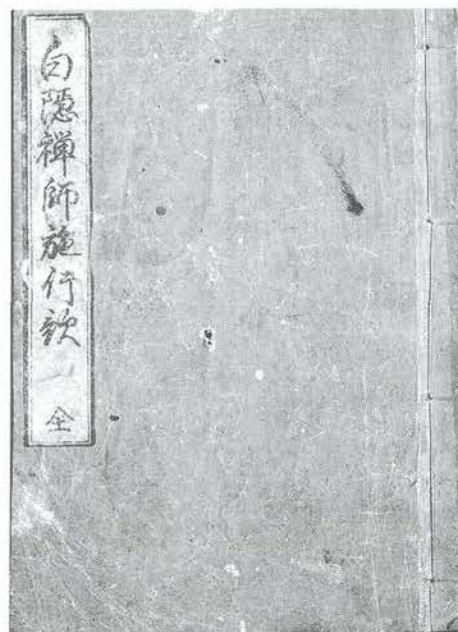 白隠禅師施行歌 全